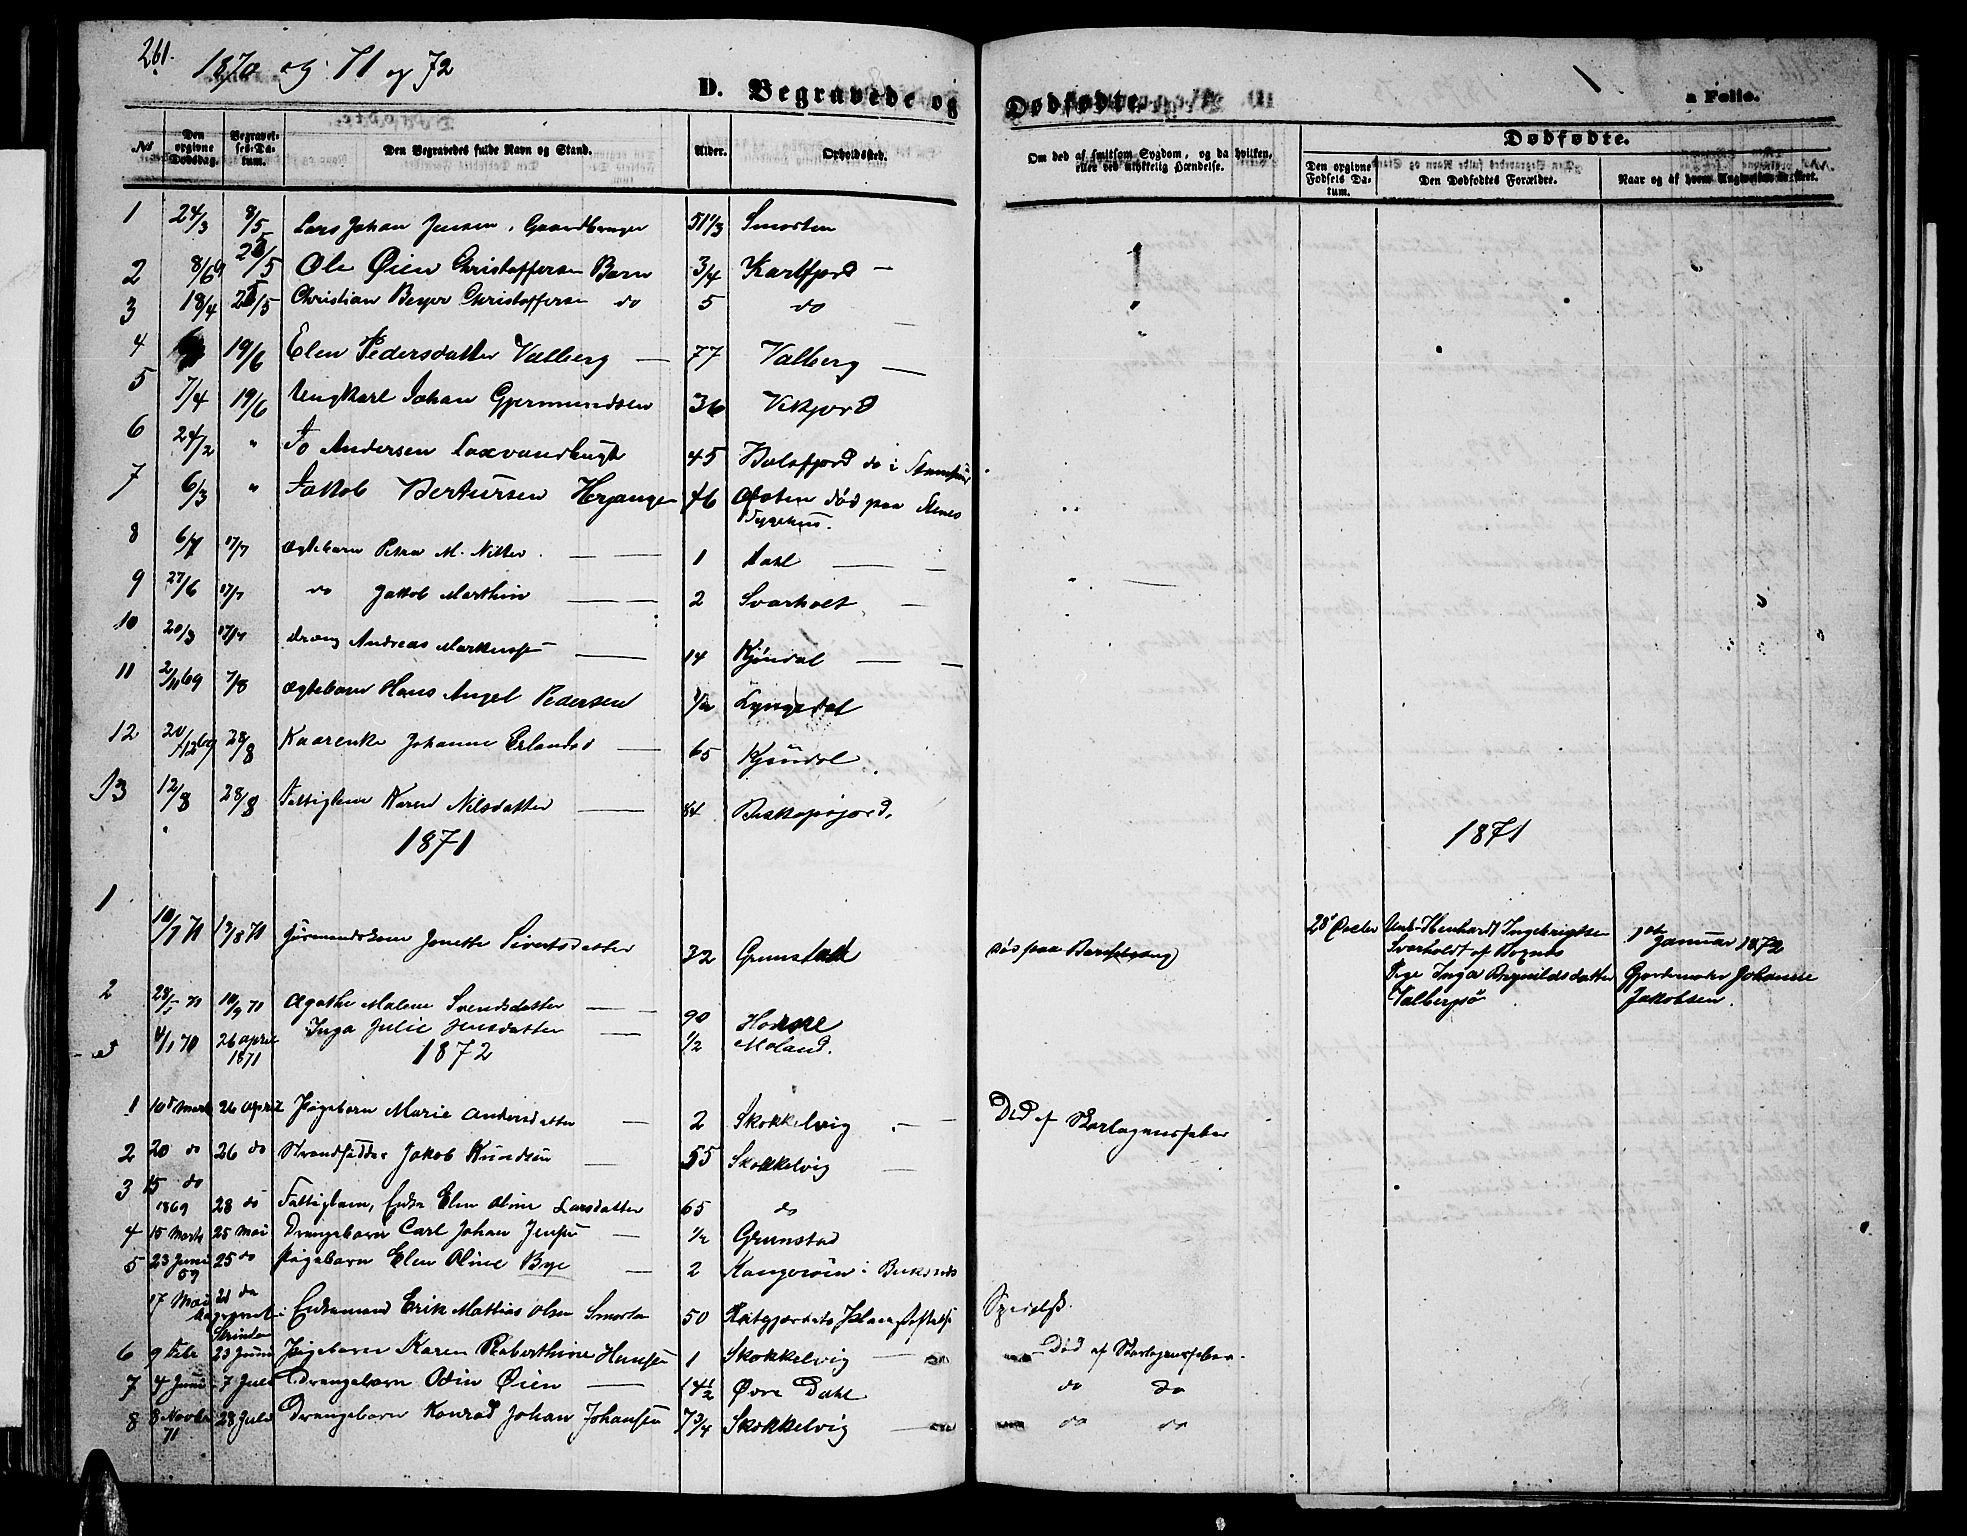 261.
1870 og 71 og 72
D. Begravede og Dødfødte.
a Folio.
No | Den opgivne Dødsdag. | Begravelses-Datum. | Den Begravedes fulde Navn og Stand. | Alder. | Opholdssted. | Om død af smitsom Sygdom, og da hvilken, eller ved ulykkelig Hændelse.
Dødfødte.
Den opgivne Fødsels Datum. | Den Dødfødtes Forældre. | Naar og af hvem
1 24/3 8/5 Lars Johan Jensen, Gaardbruger 51 1/3 Smorten
2 8/69 26/5 Ole Øien Christoffersen Barn 3/4 Kartfjord
3 18/4 26/5 Christian Beyer Christoffersen do 5 do
4 19/6 Elen Pedersdatter Valberg 77 Valberg
5 7/4 19/6 Ungkarl Johan Gjermundsen 36 Vikjord
6 24/2 " Jo Andersen Laxvandbugt 45 Balsfjord do i
7 6/3 " Jakob Bertursen Herjangen 46 Ofoten død paa Stenes Sygehus.
8 6/7 17/7 Ægtebarn Petra M. Nilter 1 Dahl
9 27/6 17/7 do Jakob Marthin 2 Svarholt
10 20/3 17/7 dreng Andreas 14 Kjøndal
11 2/11 69 7/8 Ægtebarn Hans Angel Pedersen 1/2 Lyngedal
12 20/12 69 28/8 Kaarenke Johanne Erlandsd 65 Kjøndal
13 12/8 28/8 Fattiglem Karen Nilsdatter 84 Biskopsjord.
1871
1871
1 10/7 71 13/8 71 Jonette Sivertsdatter 32 Grunstad død paa Barselseng
28' Ingebrigtsen
Svarholdt af Bognes
Pige Inga Arnildsdatter
Valbergsø
1ste Januar 1872
Gjordmoder Johanne
Jakobsen.
2 28/ 71 10/9 71 Agathe Malene Svendsdatter 90
4/1 70 26 april 1871 Inga Julie Jensdatter 1/2 Moland.
1872
1 10' Marts 26 april Pigebarn Marie Andersdatter 2 Skokkelvig Død af Skarlagensfeber
2 20 do 26 do Strandsidder Jakob Knudsen 55 Skokkelvig
3 15 do 1869 28 do Fattiglem, Enke Elen Oline Larsdatter 65 do
4 15 Marts 25 Mai Drengebarn Carl Johan Jensen 1/2 Grunstad
5 23 Juni 59 25 do Pigebarn Elen Oline Bye 2 i Buksnæs
17 Mai 21 do Enkemand Erik Mathias Olsen Smorten 50 Spedalsk.
6 9 Febr 23 Juni Pigebarn Karen Roberthine Hansen 1 Skokkelvig Død af Skarlagensfeber
7 4 Juni 7 Juli Drengebarn Odin Øien 14 1/2 Øvre Dahl do do
8 8 Novbr 71 28 Juli Drengebarn Konrad Johan Johansen 7 3/4 Skokkelvig do do